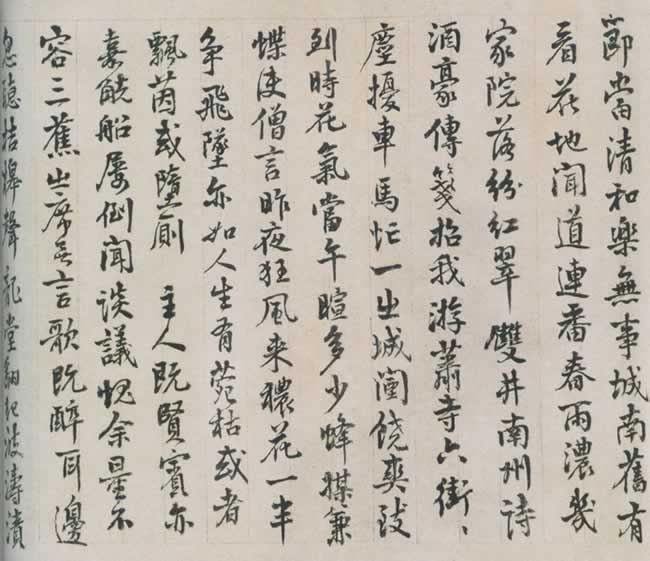 節當清和樂無事城南舊有
看花地聞道連番春雨濃幾
家院落紛紅翠雙井南州詩
酒豪傳箋招我游蕭寺六街〻
塵擾車馬忙一出城闉饒爽致
到時花氣當午暄多少蜂媒兼
蝶使僧言昨夜狂風来穠花一半
争飛墜亦如人生有菀枯或者
飄茵或墮厠 主人既賢賓亦
嘉觥船屢倒聞談議愧余量不
容三蕉出席無言歌既醉耳邊
忽聽桔槔聲龍堂翻波濤漬